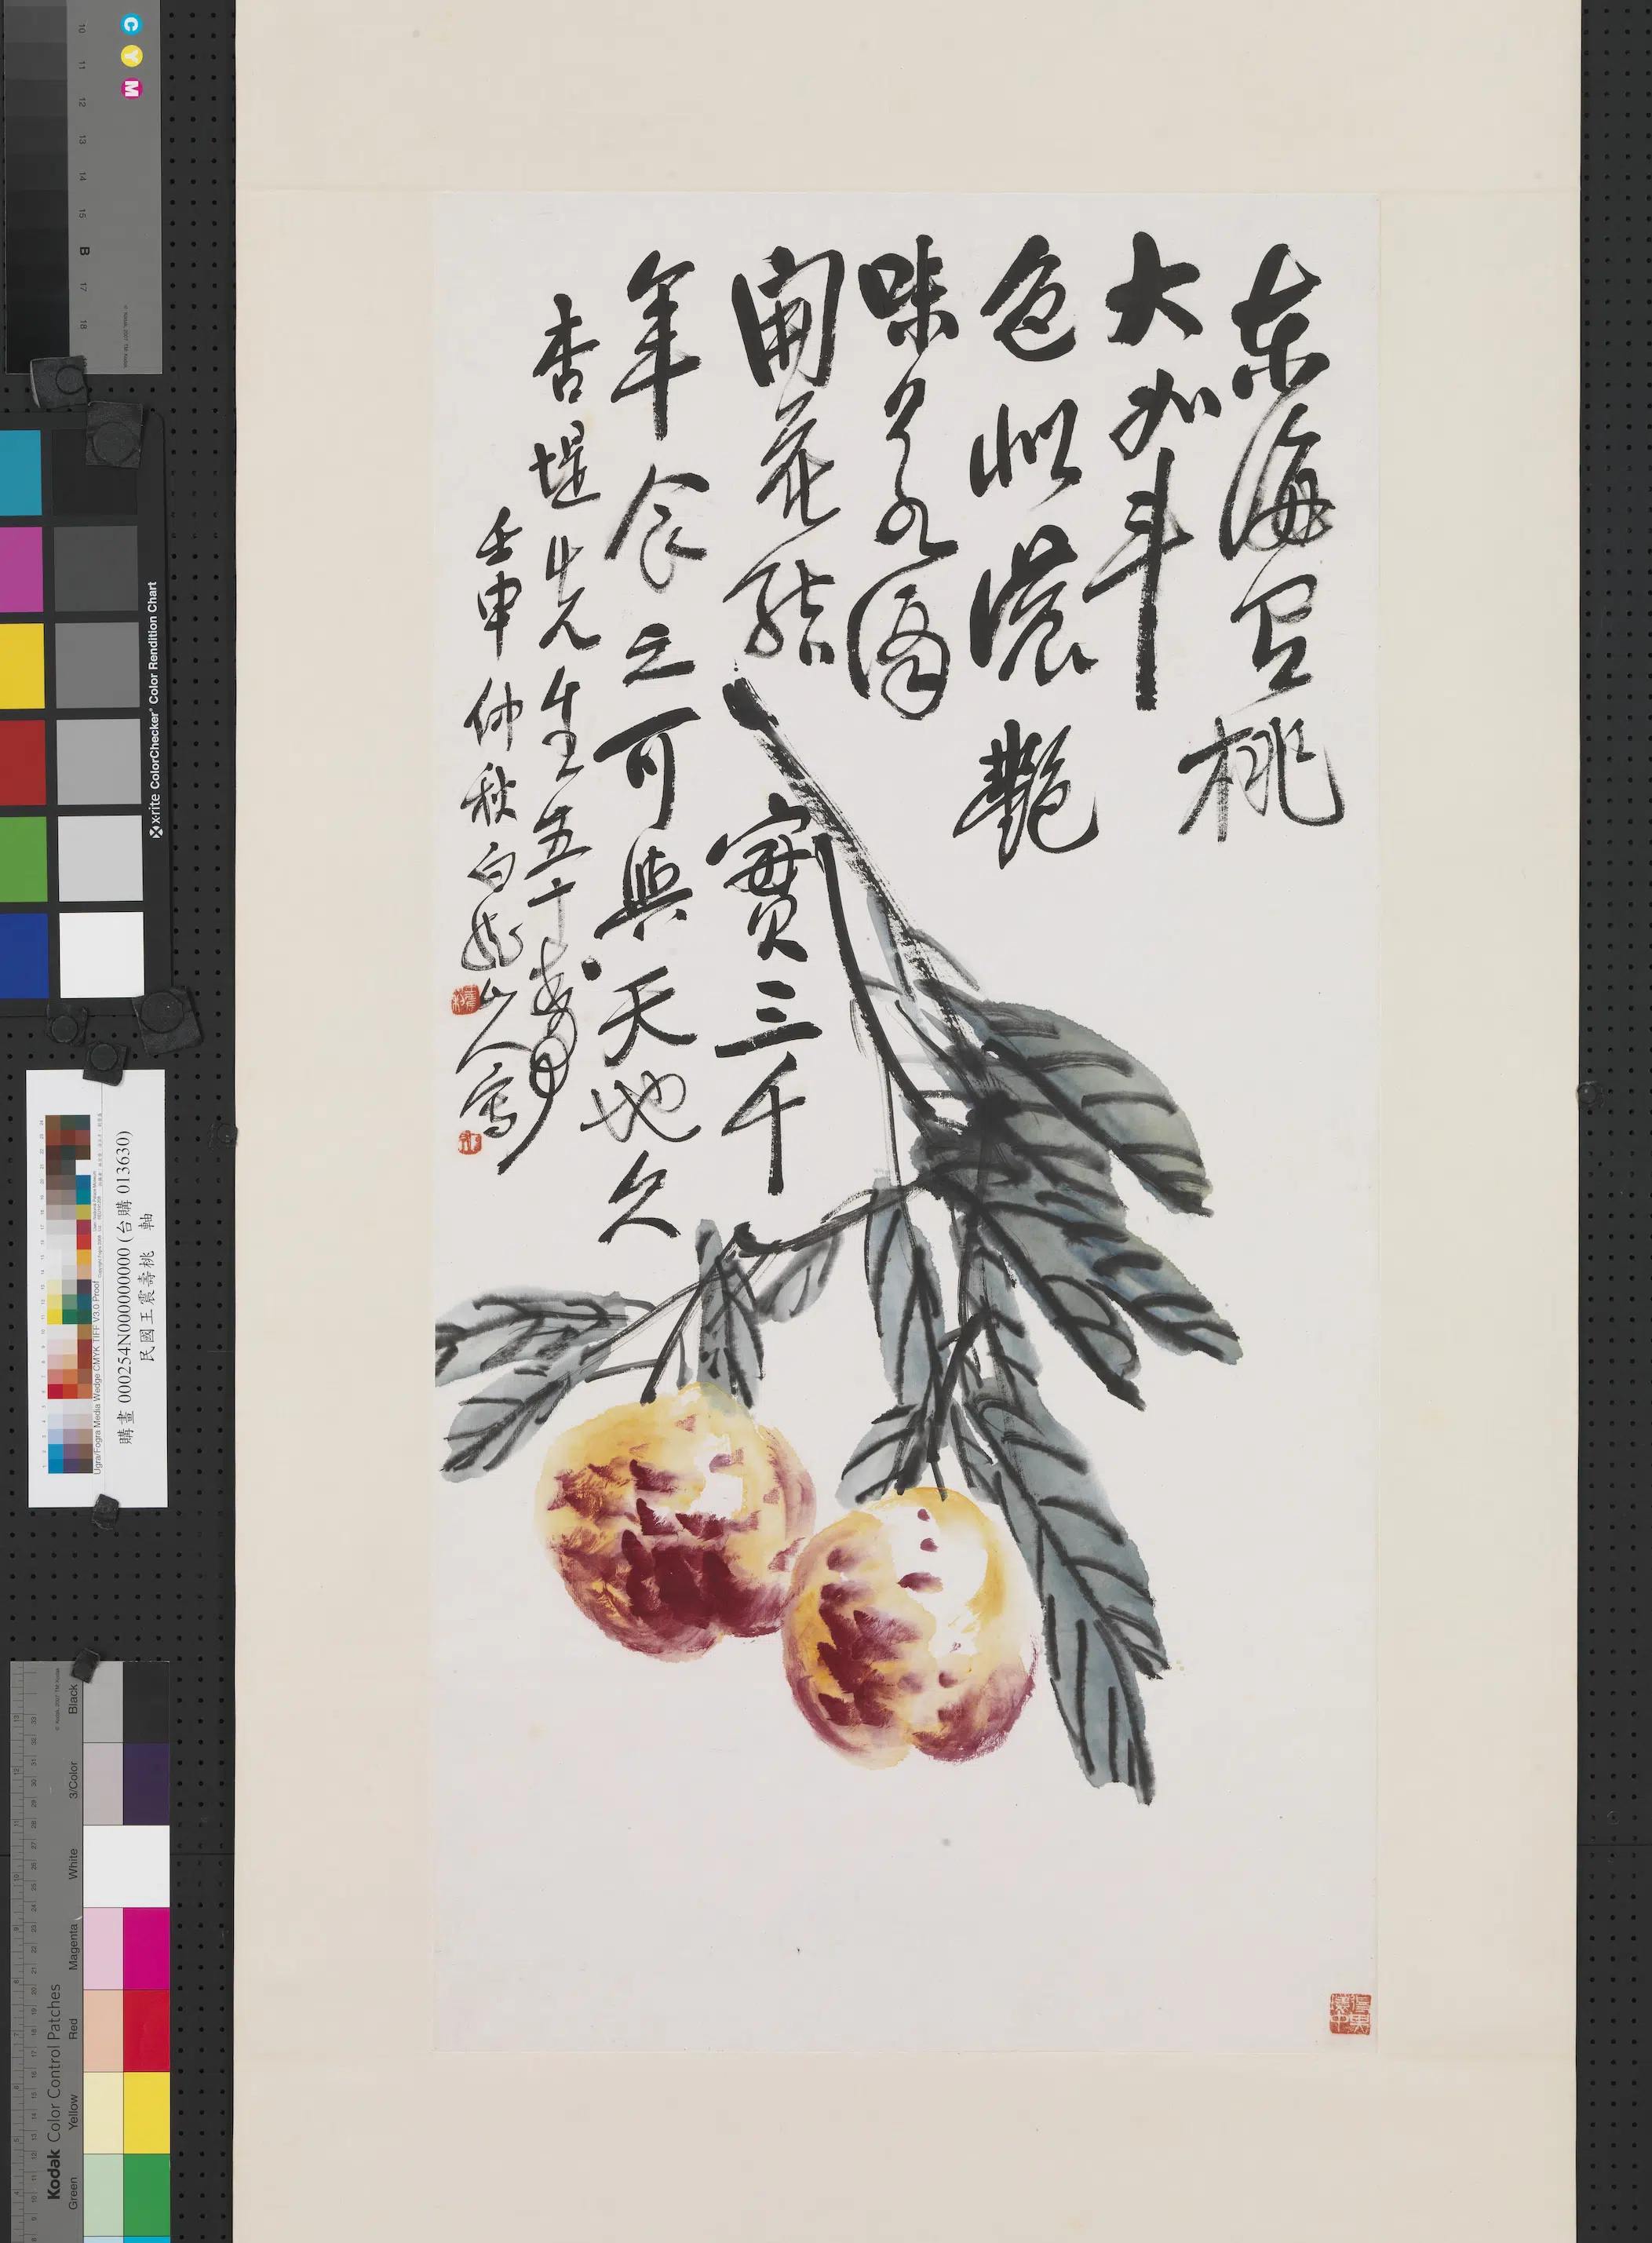 東海桃
大如斗
色似濃艷
味
開花結實三千
年食之可與天地久
杏堤先生五十壽
壬申仲秋白龍山人寫
C Y M
10 11 12 13 14 15 B 17 18
x-rite ColorChecker® Color Rendition Chart
購畫 000254N000000000 (台購 013630)
民國王震壽桃 軸
Ugra/Fogra Media Wedge CMYK TIFF V3.0 Proof
Kodak Color Control Patches
Green Yellow Red Magenta White 3/Color Black